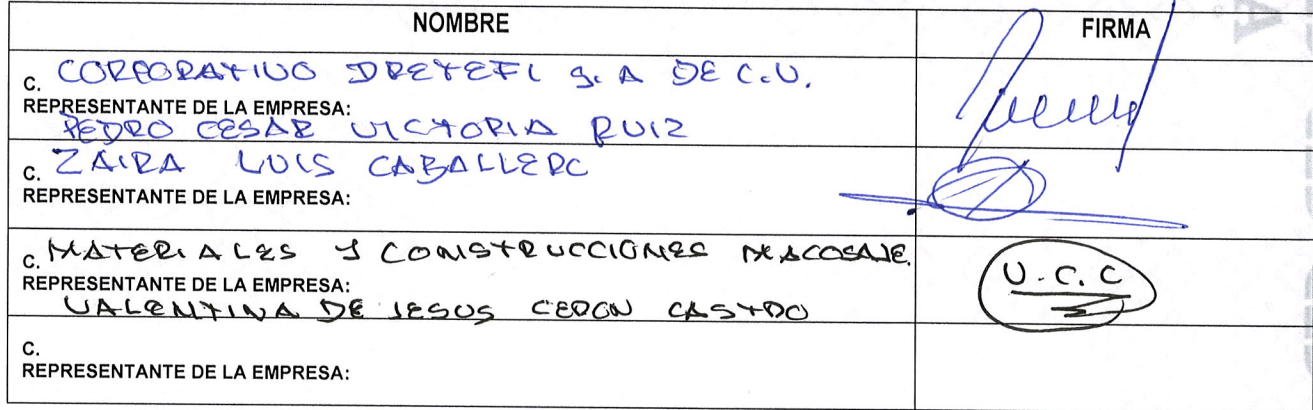 NOMBRE FIRMA
C. CORPORATIVO DRETEFI S.A DE C.V.
REPRESENTANTE DE LA EMPRESA:
PEDRO CESAR VICTORIA RUIZ
C. ZAIRA LUIS CABALLERO
REPRESENTANTE DE LA EMPRESA:
C. MATERIALES Y CONSTRUCCIONES MACOSAJE.
REPRESENTANTE DE LA EMPRESA:
VALENTINA DE JESUS CERON CASTRO
V.C.C
C.
REPRESENTANTE DE LA EMPRESA: